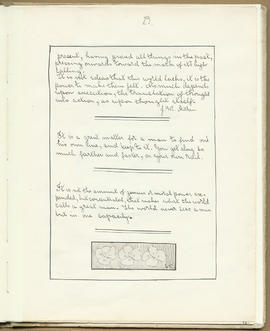 present, having proved all things in the past,
pressing onwards toward the mark of its high
calling.
It is not ideas that this world lacks, it is the
power to make them felt. So much depends
upon execution, the translation of thought
into action, as upon thought itself.
It is a great matter for a man to find out
his own line, and keep to it. You get along
much farther and faster, on your own rail.
It is not the amount of genius or moral power ex-
pended, but concentrated, that makes what the world
calls a great man. The world never sees a man
but in one capacity.